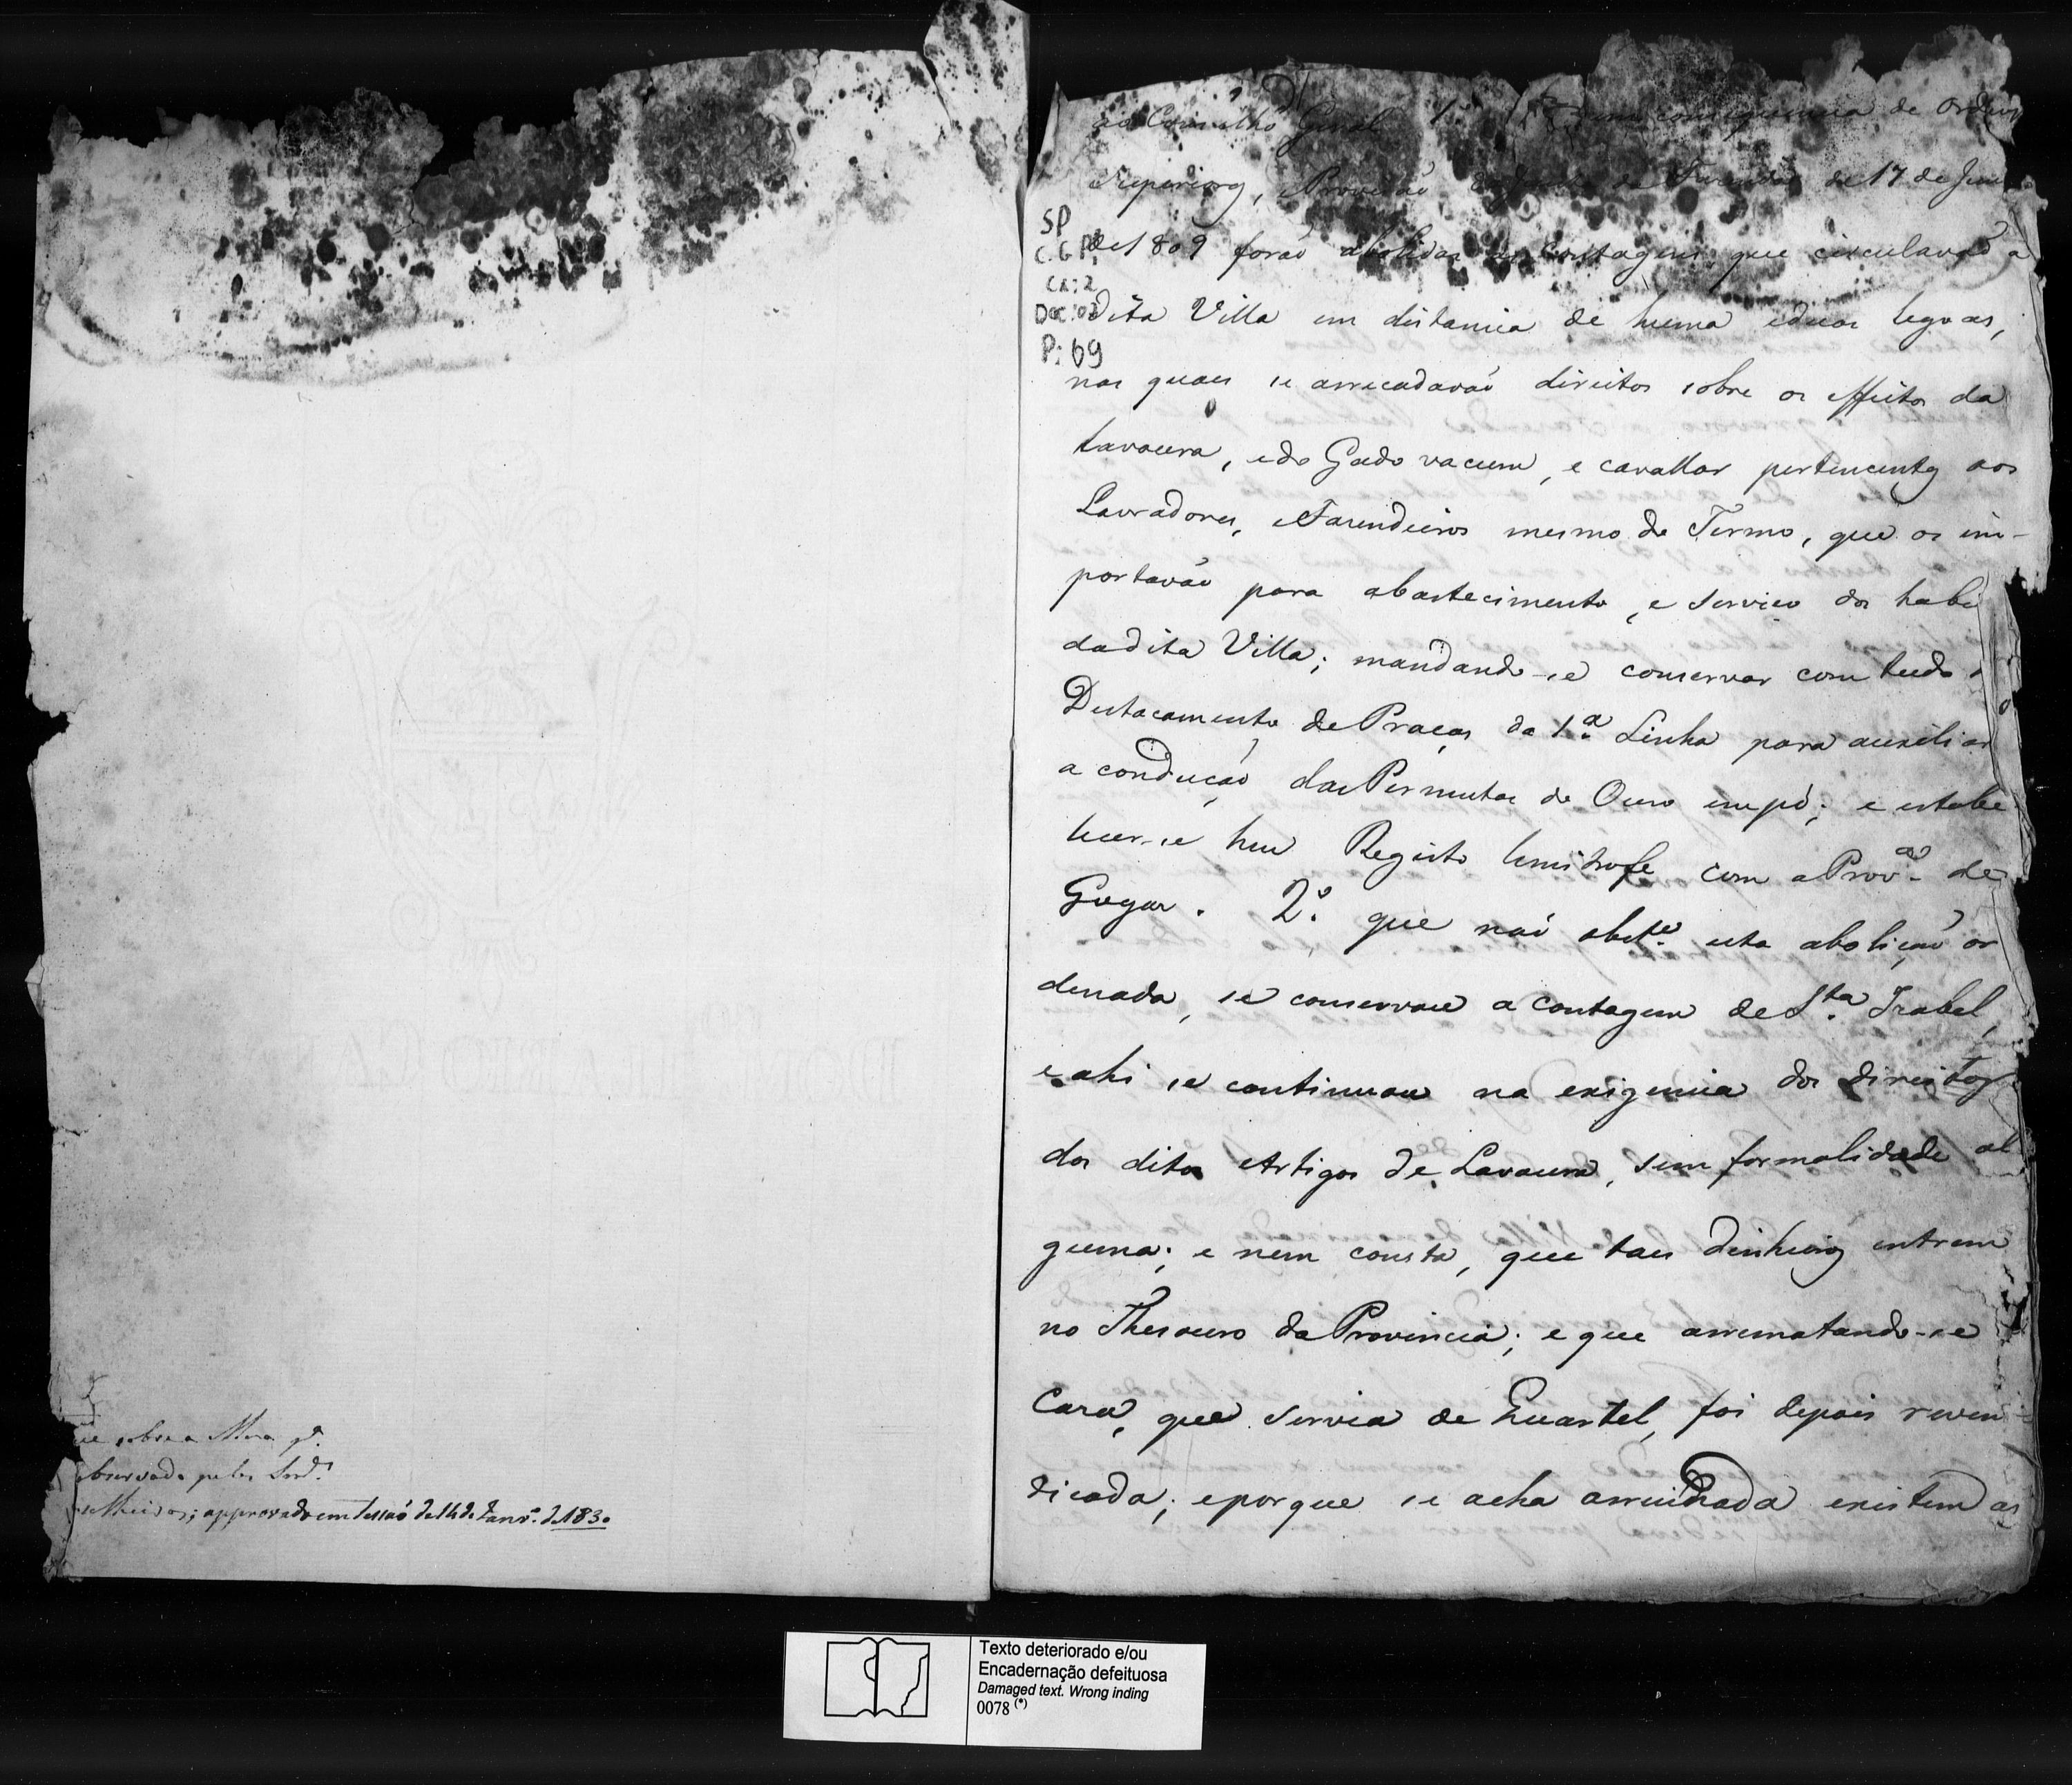 sobre a Mesa q.
observado pelos Snrs.
selheiros; approvado em Sessaõ de 14 de Janr.º de 1830
ao Conselho Geral 1.º consequencia de Ordens
Superiores, Provisaõ da Junta da Fazenda de 17 de
de 1809 foraõ abolidas as Contagens, que circulavaõ a
dita Villa em distancia de huma e duas legoas,
nas quaes se arrecadavaõ direitos sobre os effeitos da
Lavoura, e do Gado vacum, e cavallar pertencentes aos
Lavradores, e Fazendeiros mesmo do Termo, que os im-
portavaõ para abastecimento, e serviço dos habi
da dita Villa; mandando-se conservar com tudo o
Destacamento de Praças da 1.ª Linha para auxiliar
a conduçaõ das Permutas de Ouro em pó; e estabe
lecer-se hum Registo limitrofe com a Prov.ª de
Goyaz. 2.º que naõ obst.e esta aboliçaõ or
denada, se conservou a contagem de S.ta Izabel,
e ahi se continuou na exigencia dos direitos
dos ditos Artigos de Lavoura, sem formalidade al
guma; e nem consta, que taes dinheiros entrem
no Thesouro da Provincia; e que arrematando-se
Caza, que servia de Quartel, foi depois reven
dicada; e porque se acha arruinada existem as
SP
C.G.P.
CX: 2
DOC: 02
P: 69
Texto deteriorado e/ou
Encadernação defeituosa
Damaged text. Wrong inding
0078 (*)